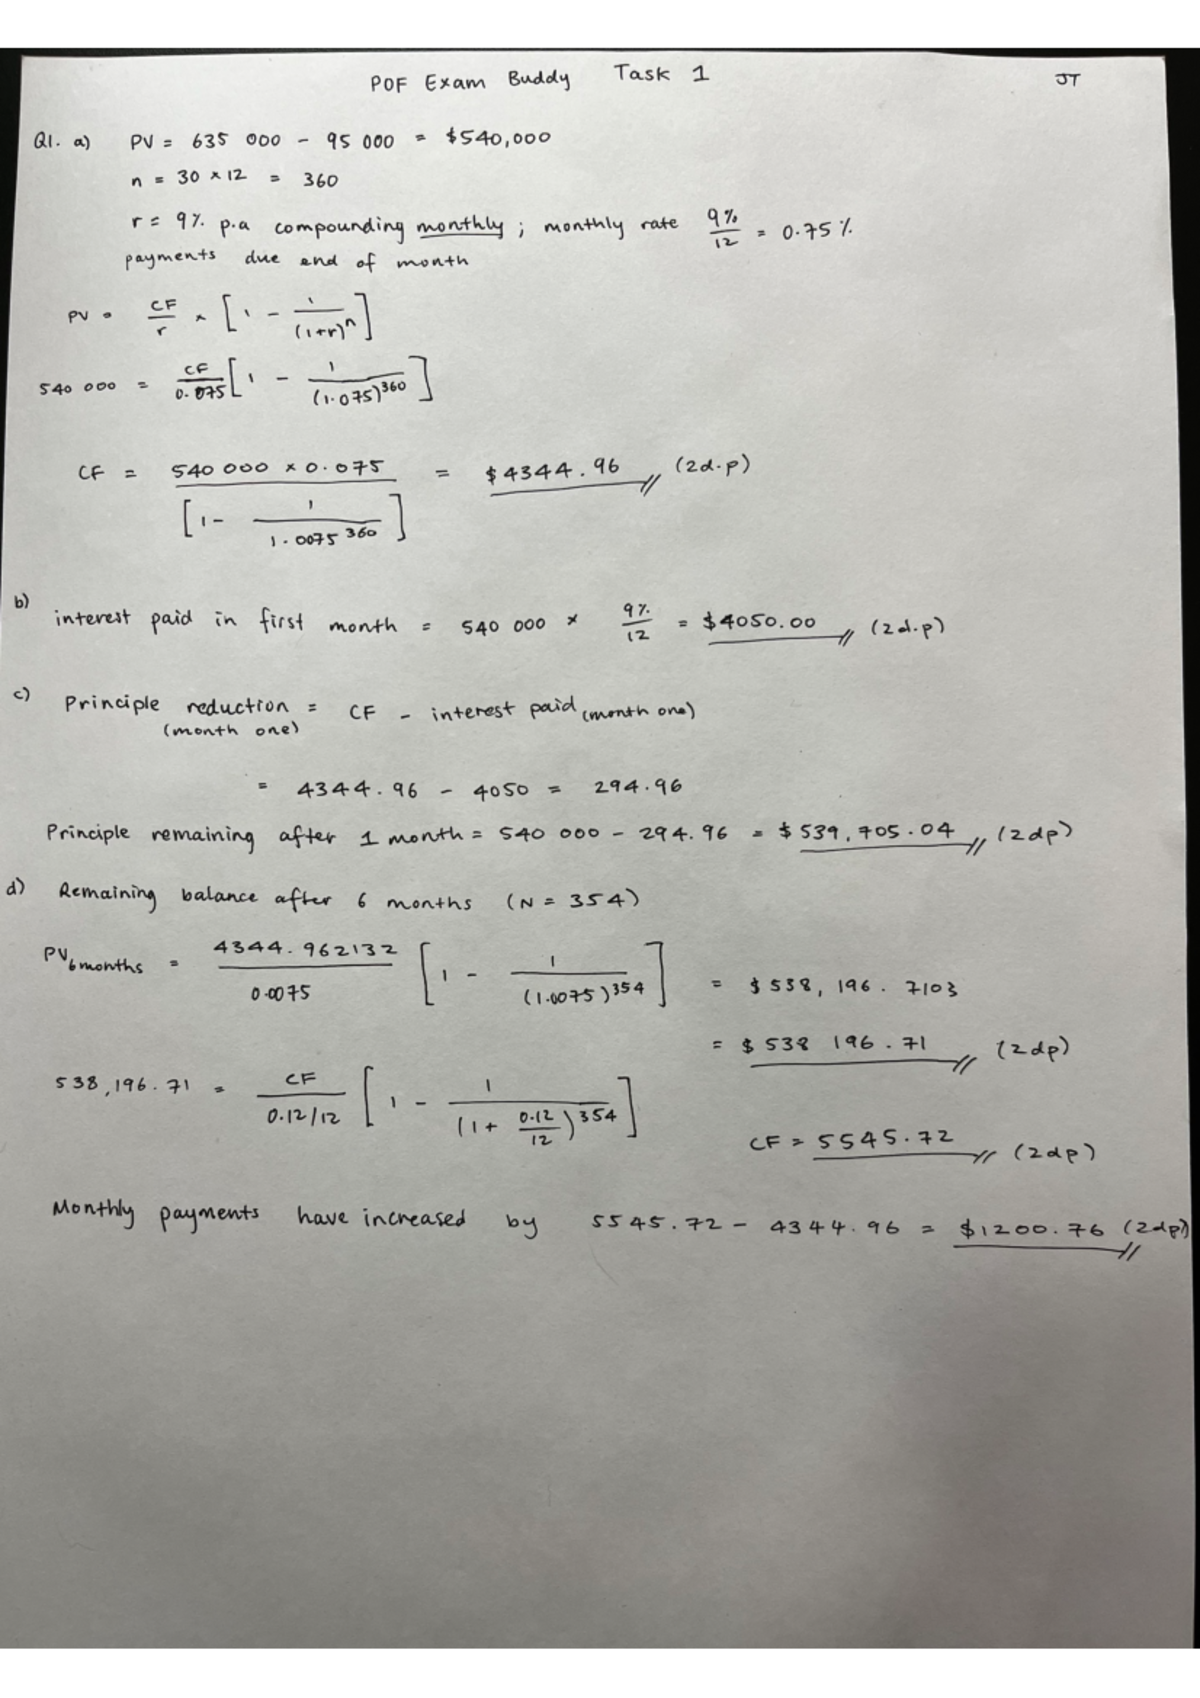 POF Exam Buddy Task 1 JT
Q1. a) PV = 635 000 - 95 000 = $540,000
n = 30 × 12 = 360
r = 9% p.a compounding monthly ; monthly rate 9%/12 = 0.75%
payments due end of month
PV = CF/r × [1 - 1/(1+r)^n]
540 000 = CF/0.075 [1 - 1/(1.075)^360]
CF = 540 000 × 0.075 / [1 - 1/1.0075^360] = $4344.96 // (2d.p)
b) interest paid in first month = 540 000 × 9%/12 = $4050.00 // (2d.p)
c) Principle reduction = CF - interest paid (month one)
(month one)
= 4344.96 - 4050 = 294.96
Principle remaining after 1 month = 540 000 - 294.96 = $539,705.04 // (2dp)
d) Remaining balance after 6 months (N = 354)
PV6months = 4344.962132/0.0075 [1 - 1/(1.0075)^354] = $538,196.7103
= $538 196.71 // (2dp)
538,196.71 = CF/0.12/12 [1 - 1/(1+0.12/12)^354]
CF = 5545.72 // (2dp)
Monthly payments have increased by 5545.72 - 4344.96 = $1200.76 (2dp) //